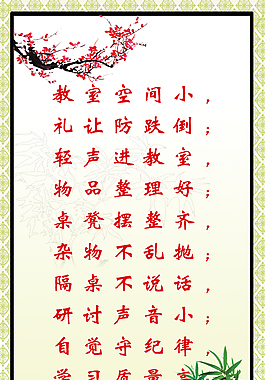 教室空间小，
礼让防跌倒；
轻声进教室，
物品整理好；
桌凳摆整齐，
杂物不乱抛；
隔桌不说话，
研讨声音小；
自觉守纪律，
学习质量高